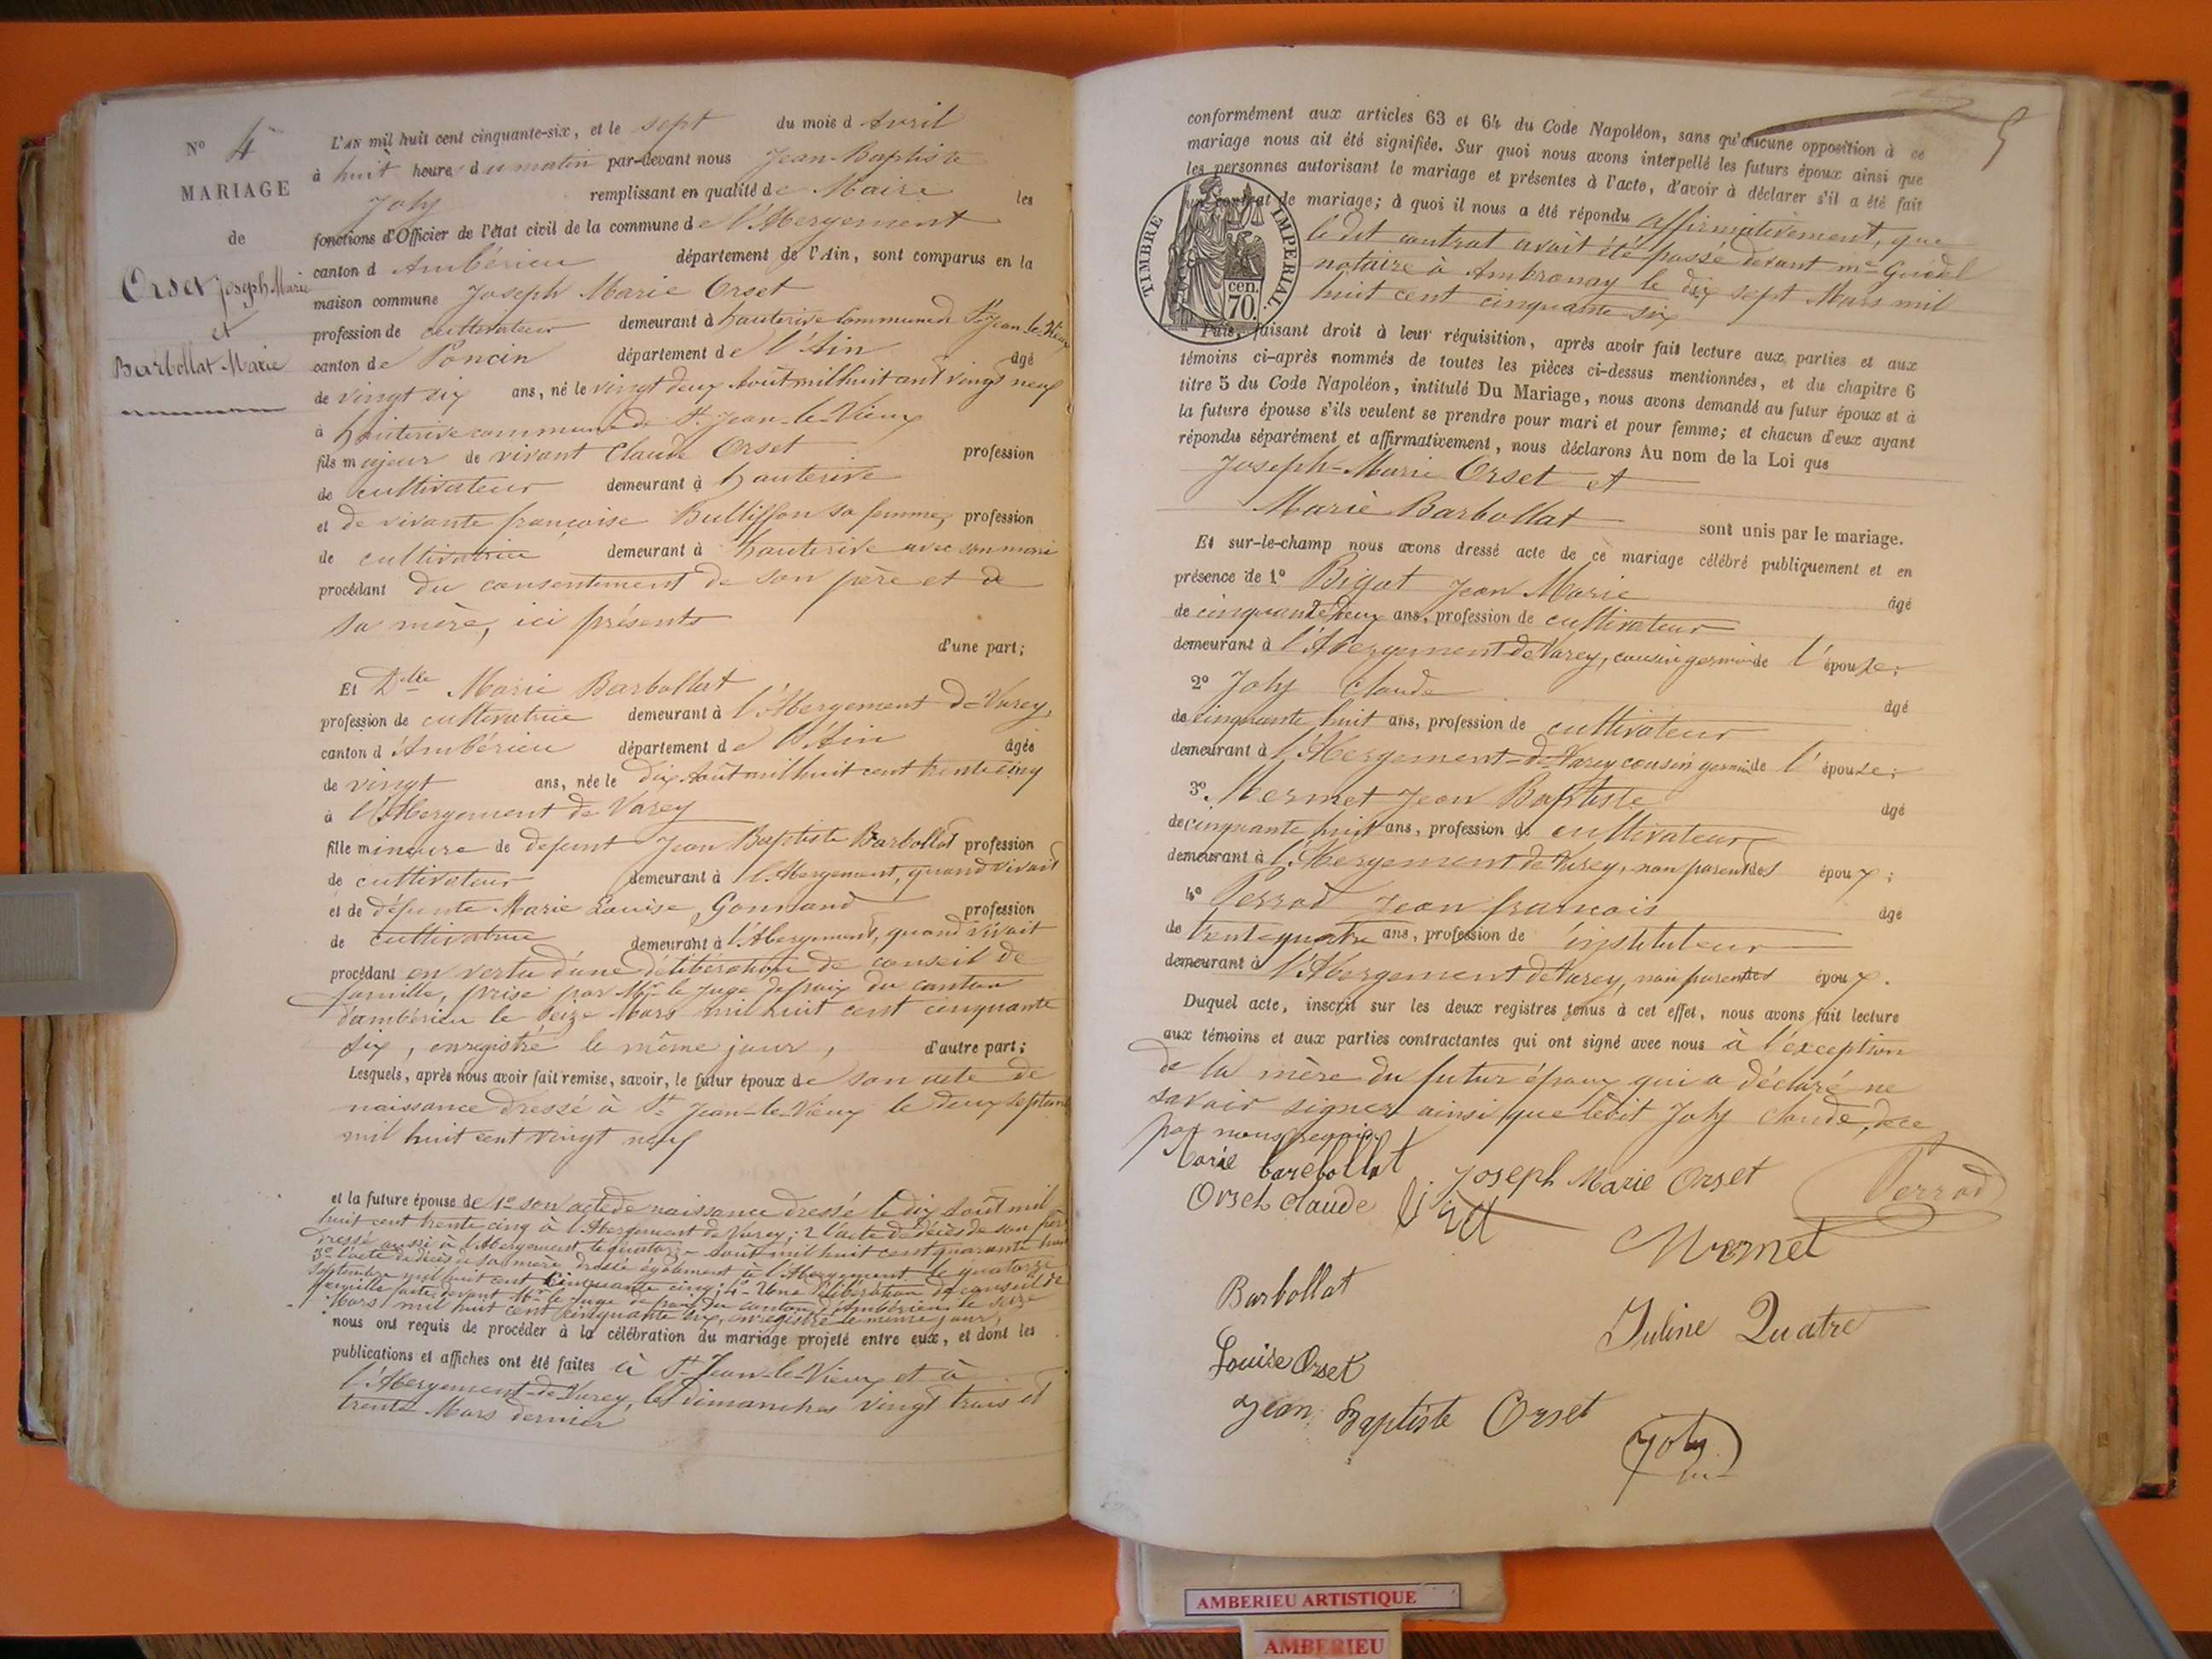 N° 4
MARIAGE
de
Orset Joseph Marie
et
Barbollat Marie
L'AN mil huit cent cinquante-six, et le sept du mois d Avril
à huit heures du matin par-devant nous Jean-Baptiste
Joly remplissant en qualité de Maire les
fonctions d'Officier de l'état civil de la commune de l'Abergement
canton d Ambérieu département de l'Ain, sont comparus en la
maison commune Joseph Marie Orset
profession de cultivateur demeurant à hauterive commune de St Jean-le-Vieux
canton de Poncin département de l'Ain âgé
de vingt six ans, né le vingt deux Août mil huit cent vingt neuf
à hauterive commune de St Jean-le-Vieux
fils majeur de vivant Claude Orset profession
de cultivateur demeurant à hauterive
et de vivante françoise Bulliffon sa femme, profession
de cultivatrice demeurant à hauterive avec son mari
procédant du consentement de son père et de
sa mère, ici présents
d'une part;
Et Dlle Marie Barbollat
profession de cultivatrice demeurant à l'Abergement de Varey,
canton d'Ambérieu département de l'Ain âgée
de vingt ans, née le dix Août mil huit cent trente cinq
à l'Abergement de Varey
fille mineure de defunt Jean Baptiste Barbollat profession
de cultivateur demeurant à l'Abergement, quand vivait
et de défunte Marie Louise Gonnand profession
de cultivatrice demeurant à l'Abergement, quand vivait
procédant en vertu d'une délibération de conseil de
famille, prise par Mr le Juge de paix du canton
d'ambérieu le seize Mars mil huit cent cinquante
six, enregistré le même jour, d'autre part;
Lesquels, après nous avoir fait remise, savoir, le futur époux de son acte de
naissance dressé à St Jean-le-Vieux le deux septembre
mil huit cent vingt neuf
et la future épouse de 1° son acte de naissance dressé le dix Août mil
huit cent trente cinq à l'Abergement de Varey; 2 l'acte de décès de son père
dressé aussi à l'Abergement le quatorze Août mil huit cent quarante huit
3° l'acte de décès de sa mère dressé également à l'Abergement le quatorze
septembre mil huit cent cinquante cinq; 4° Une délibération de conseil de
famille faite devant Mr le Juge de paix du canton d'Ambérieu le seize
Mars mil huit cent cinquante six, enregistré le même jour,
nous ont requis de procéder à la célébration du mariage projeté entre eux, et dont les
publications et affiches ont été faites à St Jean-le-Vieux et à
l'Abergement-de-Varey, les dimanches vingt trois et
trente Mars dernier
5
conformément aux articles 63 et 64 du Code Napoléon, sans qu'aucune opposition à ce
mariage nous ait été signifiée. Sur quoi nous avons interpellé les futurs époux ainsi que
les personnes autorisant le mariage et présentes à l'acte, d'avoir à déclarer s'il a été fait
un contrat de mariage; à quoi il nous a été répondu affirmativement, que
le dit contrat avait été passé devant me
notaire à Ambronay le dix sept Mars mil
huit cent cinquante six
TIMBRE IMPERIAL.
cen.
70.
Puis, faisant droit à leur réquisition, après avoir fait lecture aux parties et aux
témoins ci-après nommés de toutes les pièces ci-dessus mentionnées, et du chapitre 6
titre 5 du Code Napoléon, intitulé Du Mariage, nous avons demandé au futur époux et à
la future épouse s'ils veulent se prendre pour mari et pour femme; et chacun d'eux ayant
répondu séparément et affirmativement, nous déclarons Au nom de la Loi que
Joseph-Marie Orset et
Marie Barbollat sont unis par le mariage.
Et sur-le-champ nous avons dressé acte de ce mariage célébré publiquement et en
présence de 1° Bigot Jean Marie âgé
de cinquante deux ans, profession de cultivateur
demeurant à l'Abergement de Varey, cousin germain de l'épouse;
2° Joly Claude âgé
de cinquante huit ans, profession de cultivateur
demeurant à l'Abergement-de-Varey cousin germain de l'épouse;
3° Mermet Jean Baptiste âgé
de cinquante huit ans, profession de cultivateur
demeurant à l'Abergement de Varey, non parent des époux;
4° Perrod Jean françois âgé
de trente quatre ans, profession de instituteur
demeurant à l'Abergement de Varey, non parent des époux.
Duquel acte, inscrit sur les deux registres tenus à cet effet, nous avons fait lecture
aux témoins et aux parties contractantes qui ont signé avec nous à l'exception
de la mère du futur époux qui a déclaré ne
savoir signer ainsi que ledit Joly Claude, de ce
par nous requis.
Marie barebollat Joseph Marie Orset Perrod
Orset claude
Mermet
Barbollat
Juline Quatre
Louise Orset
Jean Baptiste Orset
Joly
AMBERIEU ARTISTIQUE
AMBERIEU